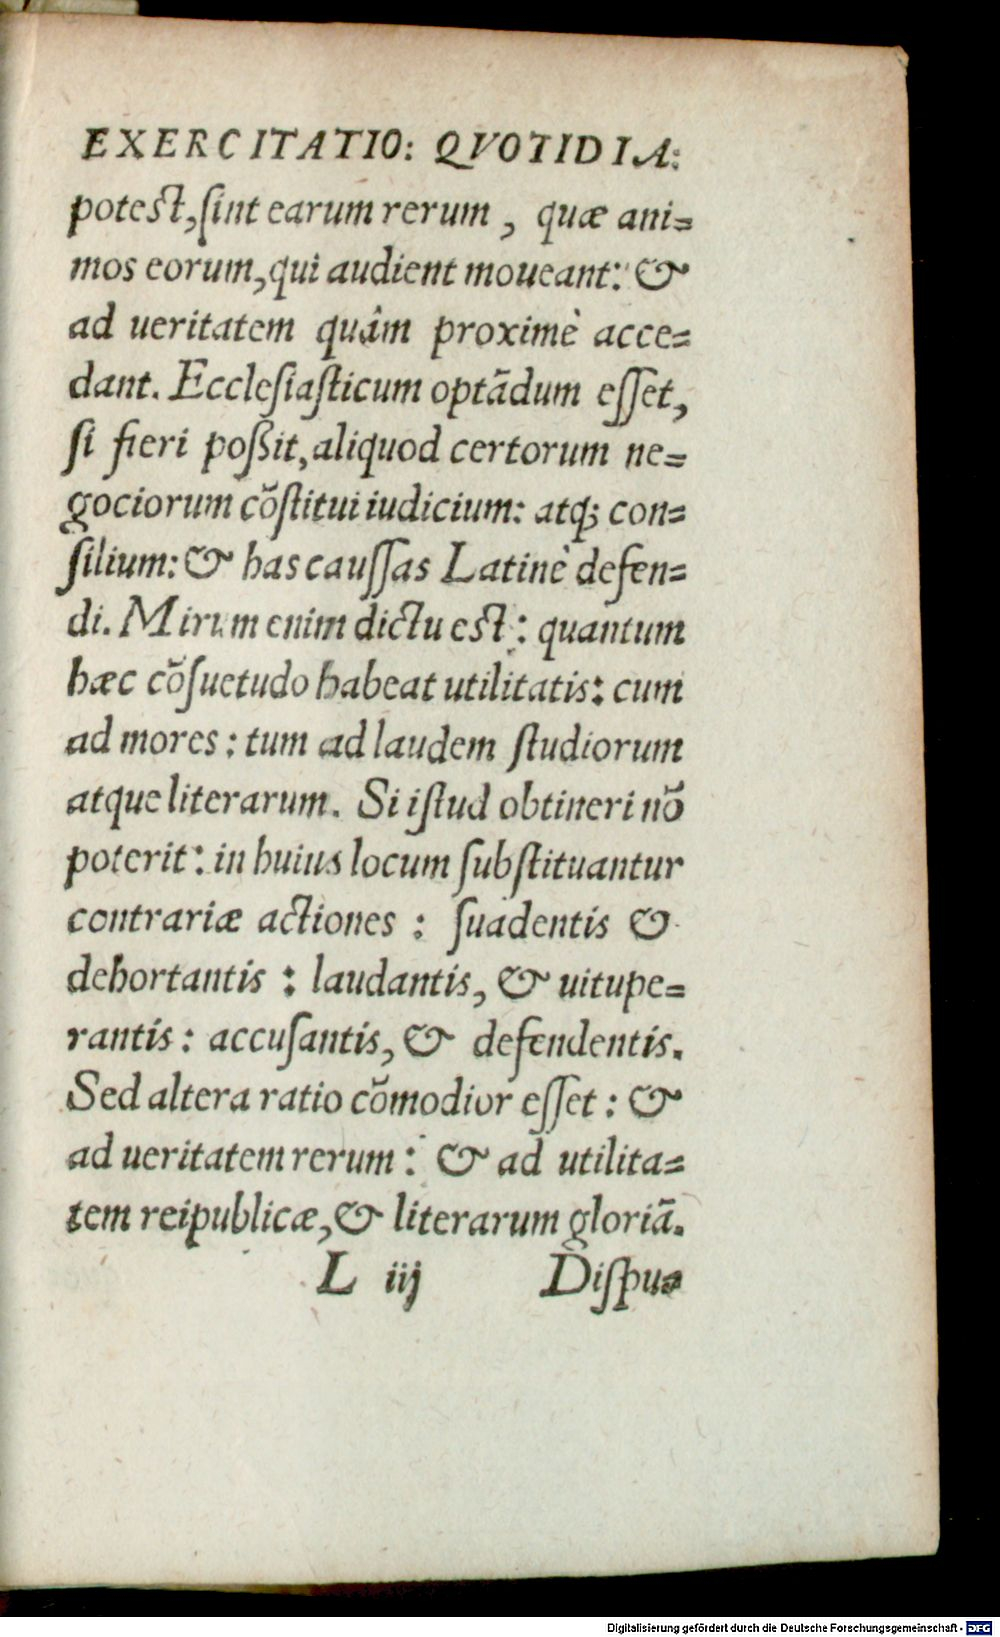 EXERCITATIO: QVOTIDIA:
potest, ſint earum rerum, quæ ani=
mos eorum, qui audient moueant: &
ad ueritatem quàm proximè acce=
dant. Eccleſiaſticum optãdum eſſet,
ſi fieri poßit, aliquod certorum ne=
gociorum cõſtitui iudicium: atq; con=
ſilium: & has cauſſas Latinè defen=
di. Mirum enim dictu est: quantum
hæc cõſuetudo habeat utilitatis: cum
ad mores: tum ad laudem ſtudiorum
atque literarum. Si iſtud obtineri nõ
poterit: in huius locum ſubſtituantur
contrariæ actiones: ſuadentis &
dehortantis: laudantis, & uitupe=
rantis: accuſantis, & defendentis.
Sed altera ratio cõmodior eſſet: &
ad ueritatem rerum: & ad utilita=
tem reipublicæ, & literarum gloriã.
L iij Diſpu=
Digitalisierung gefördert durch die Deutsche Forschungsgemeinschaft - DFG